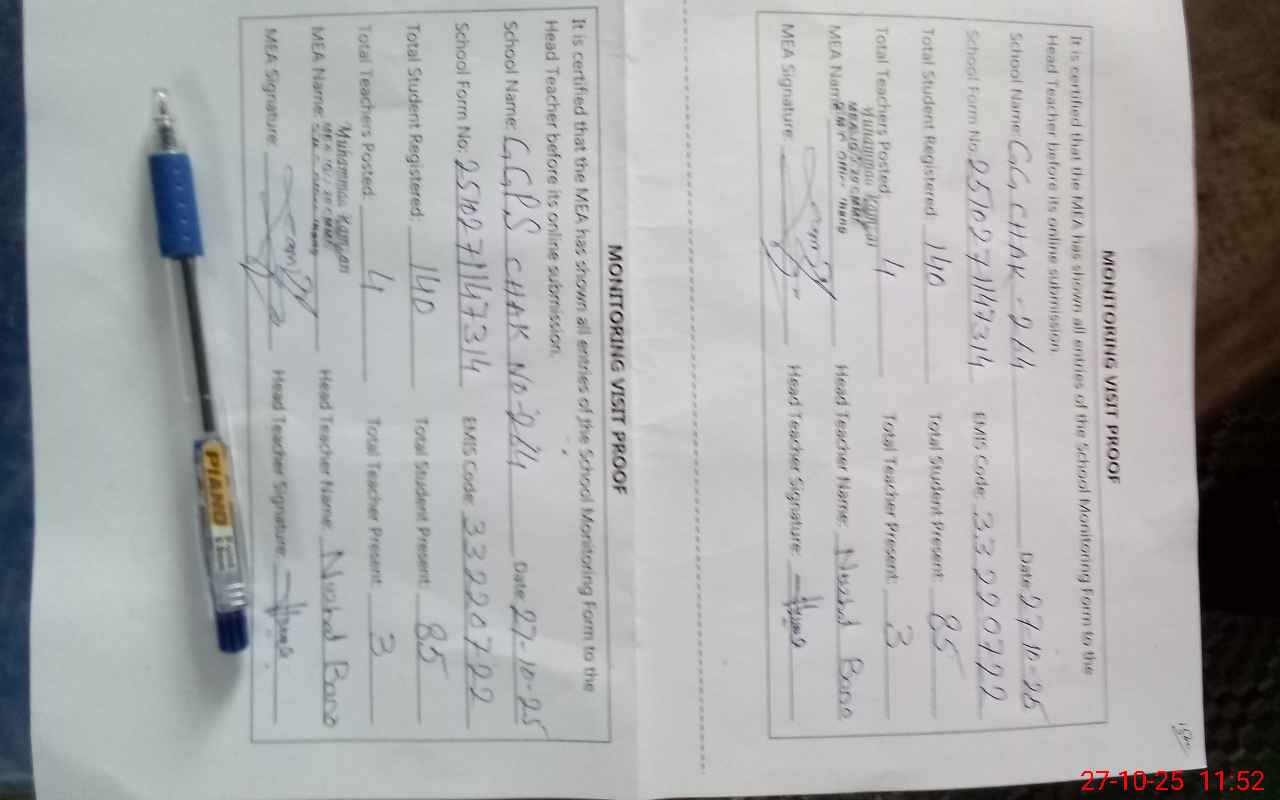 MONITORING VISIT PROOF
It is certified that the MEA has shown all entries of the School Monitoring Form to the
Head Teacher before its online submission.
School Name: GG, CHAK-244 Date: 27-10-25
School Form No: 2510271147314 EMIS Code: 33220722
Total Student Registered: 140 Total Student Present: 85
Total Teachers Posted: 4 Total Teacher Present: 3
Muhammad
MEA Name: Head Teacher Name: Bano
MEA Signature: Head Teacher Signature:
MONITORING VISIT PROOF
It is certified that the MEA has shown all entries of the School Monitoring Form to the
Head Teacher before its online submission.
School Name: GGPS CHAK NO-244 Date: 27-10-25
School Form No: 2510271147314 EMIS Code: 33220722
Total Student Registered: 140 Total Student Present: 85
Total Teachers Posted: 4 Total Teacher Present: 3
Muhammad
MEA Name: Head Teacher Name: Bano
MEA Signature: Head Teacher Signature:
PIANO
27-10-25 11:52